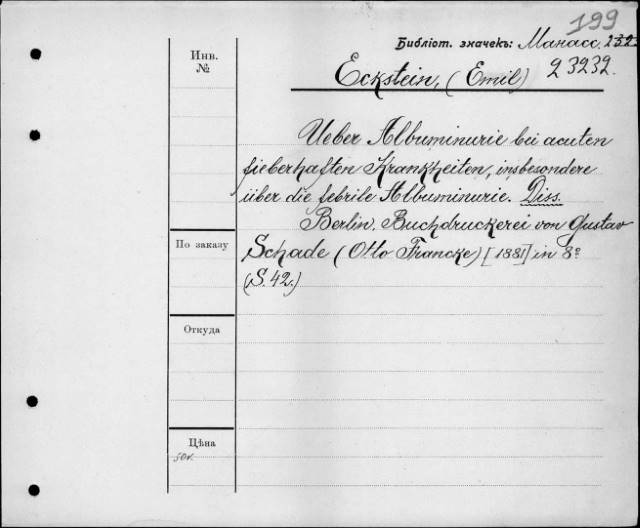 199
Инв.
№
Библіот. значекъ: Манасс.
23232.
Eckstein, (Emil)
Ueber Albuminurie bei acuten
fieberhaften Krankheiten, insbesondere
über die febrile Albuminurie. Diss.
Berlin, Buchdruckerei von Gustav
По заказу
Schade (Otto Francke) [1881] in 8º
(S. 42.)
Откуда
Цѣна
50к.